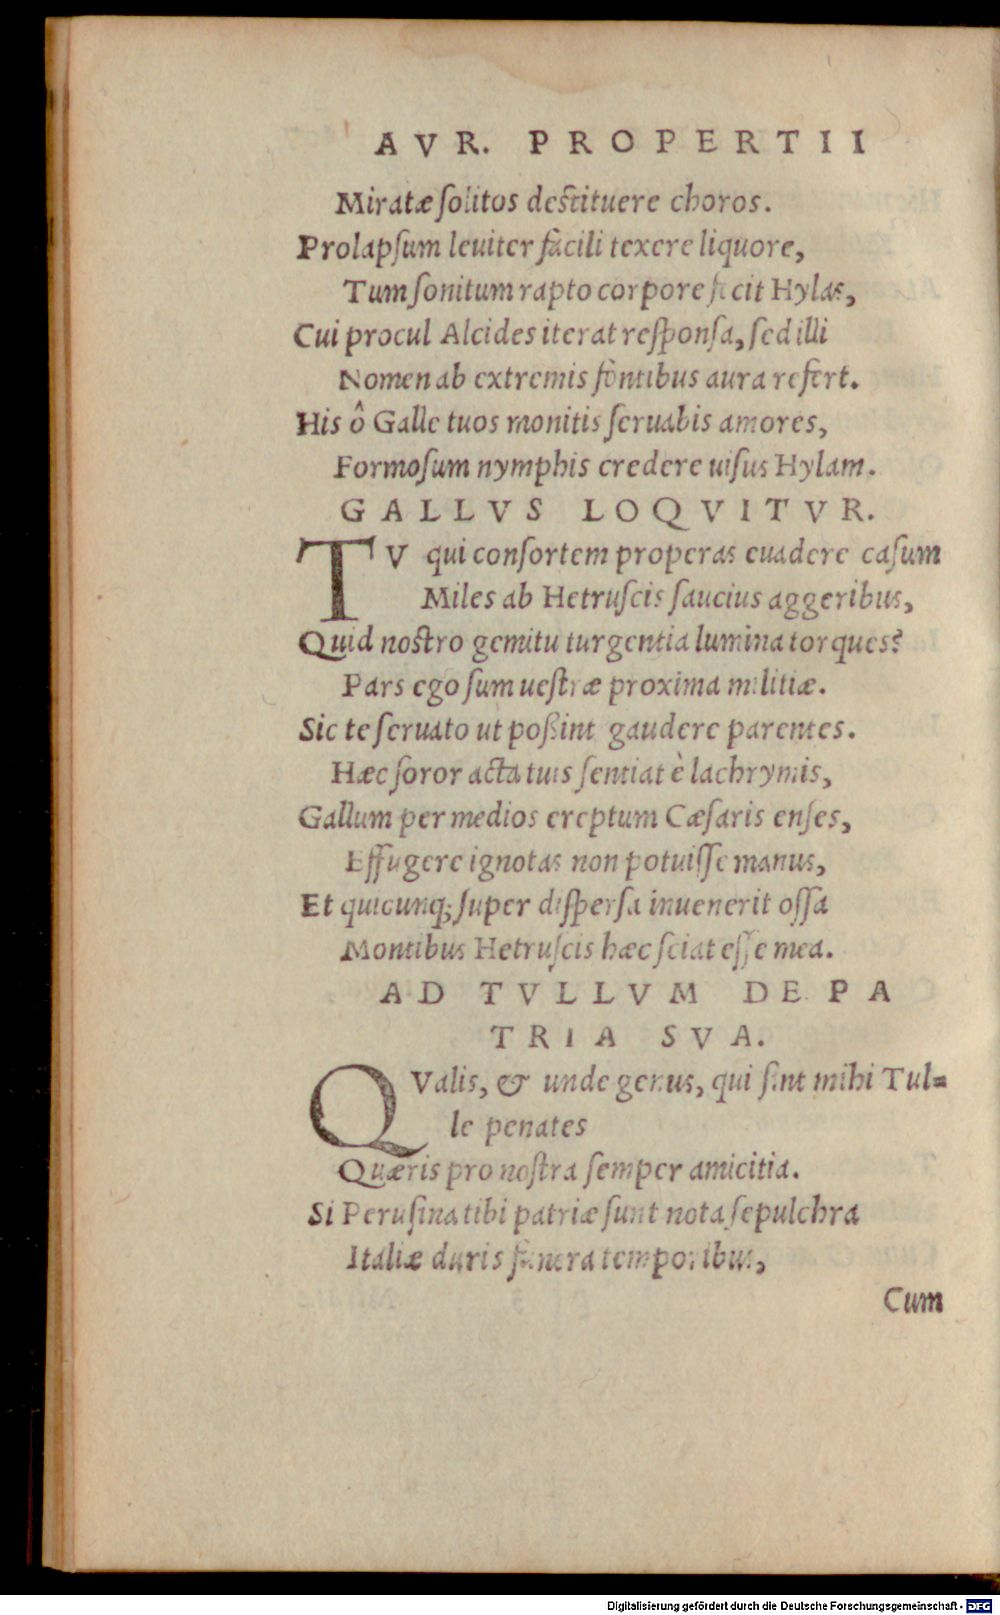 AVR. PROPERTII
Miratæ solitos destituere choros.
Prolapsum leuiter facili texere liquore,
Tum sonitum rapto corpore fecit Hylas,
Cui procul Alcides iterat responsa, sed illi
Nomen ab extremis fontibus aura refert.
His ô Galle tuos monitis seruabis amores,
Formosum nymphis credere uisus Hylam.
GALLVS LOQVITVR.
TV qui consortem properas euadere casum
Miles ab Hetruscis saucius aggeribus,
Quid nostro gemitu turgentia lumina torques?
Pars ego sum uestræ proxima militiæ.
Sic te seruato ut poßint gaudere parentes.
Hæc soror acta tuis sentiat è lachrymis,
Gallum per medios ereptum Cæsaris enses,
Effugere ignotas non potuisse manus,
Et quicunq; super dispersa inuenerit ossa
Montibus Hetruscis hæc sciat esse mea.
AD TVLLVM DE PA
TRIA SVA.
QValis, & unde genus, qui sint mihi Tul=
le penates
Quæris pro nostra semper amicitia.
Si Perusina tibi patriæ sunt nota sepulchra
Italiæ duris funera temporibus,
Cum
Digitalisierung gefördert durch die Deutsche Forschungsgemeinschaft - DFG